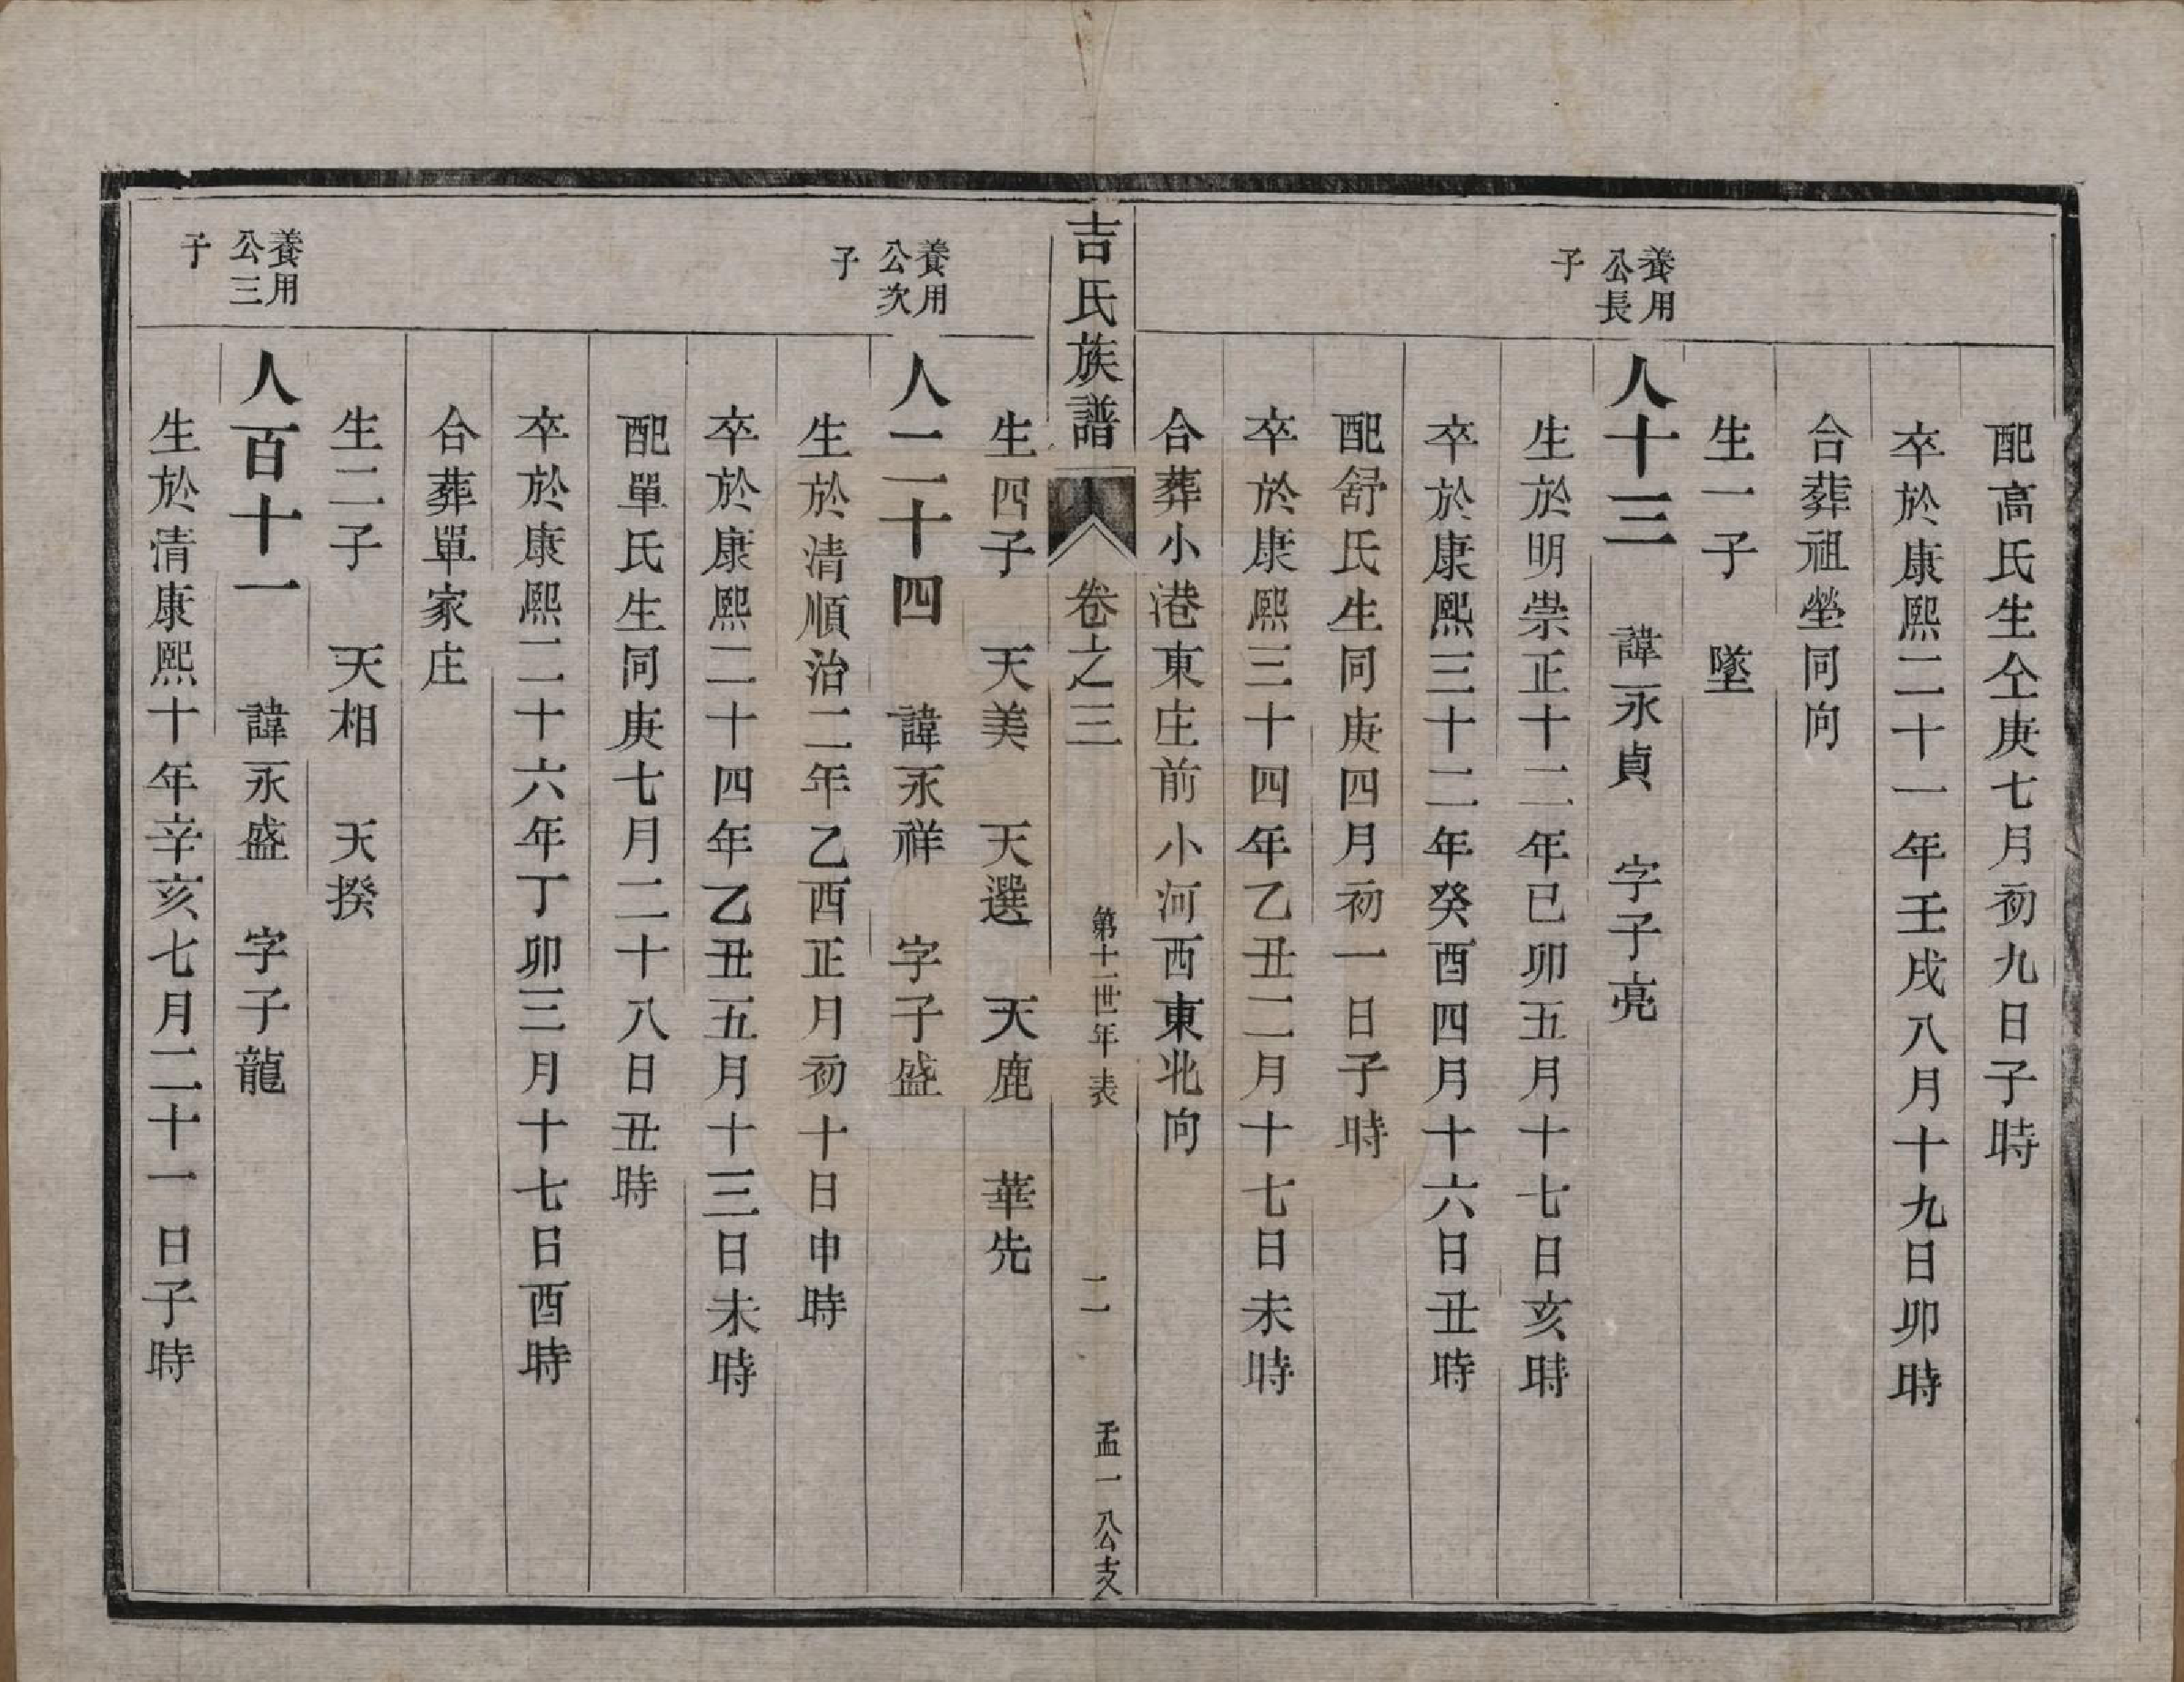 配高氏生仝庚七月初九日子時
卒於康熙二十一年壬戌八月十九日卯時
合葬祖塋同向
生一子　墜
養用公長子
人十三　諱永貞　字子亮
生於明崇正十二年已卯五月十七日亥時
卒於康熙三十二年癸酉四月十六日丑時
配舒氏生同庚四月初一日子時
卒於康熙三十四年乙丑二月十七日未時
合葬小港東庄前小河西東北向
吉氏族譜　卷之三　第十一世年表　二　孟一公支
生四子　天美　天選　天鹿　華先
養用公次子
人二十四　諱永祥　字子盛
生於清順治二年乙酉正月初十日申時
卒於康熙二十四年乙丑五月十三日未時
配單氏生同庚七月二十八日丑時
卒於康熙二十六年丁卯三月十七日酉時
合葬單家庄
生二子　天相　天揆
養用公三子
人百十一　諱永盛　字子龍
生於清康熙十年辛亥七月二十一日子時